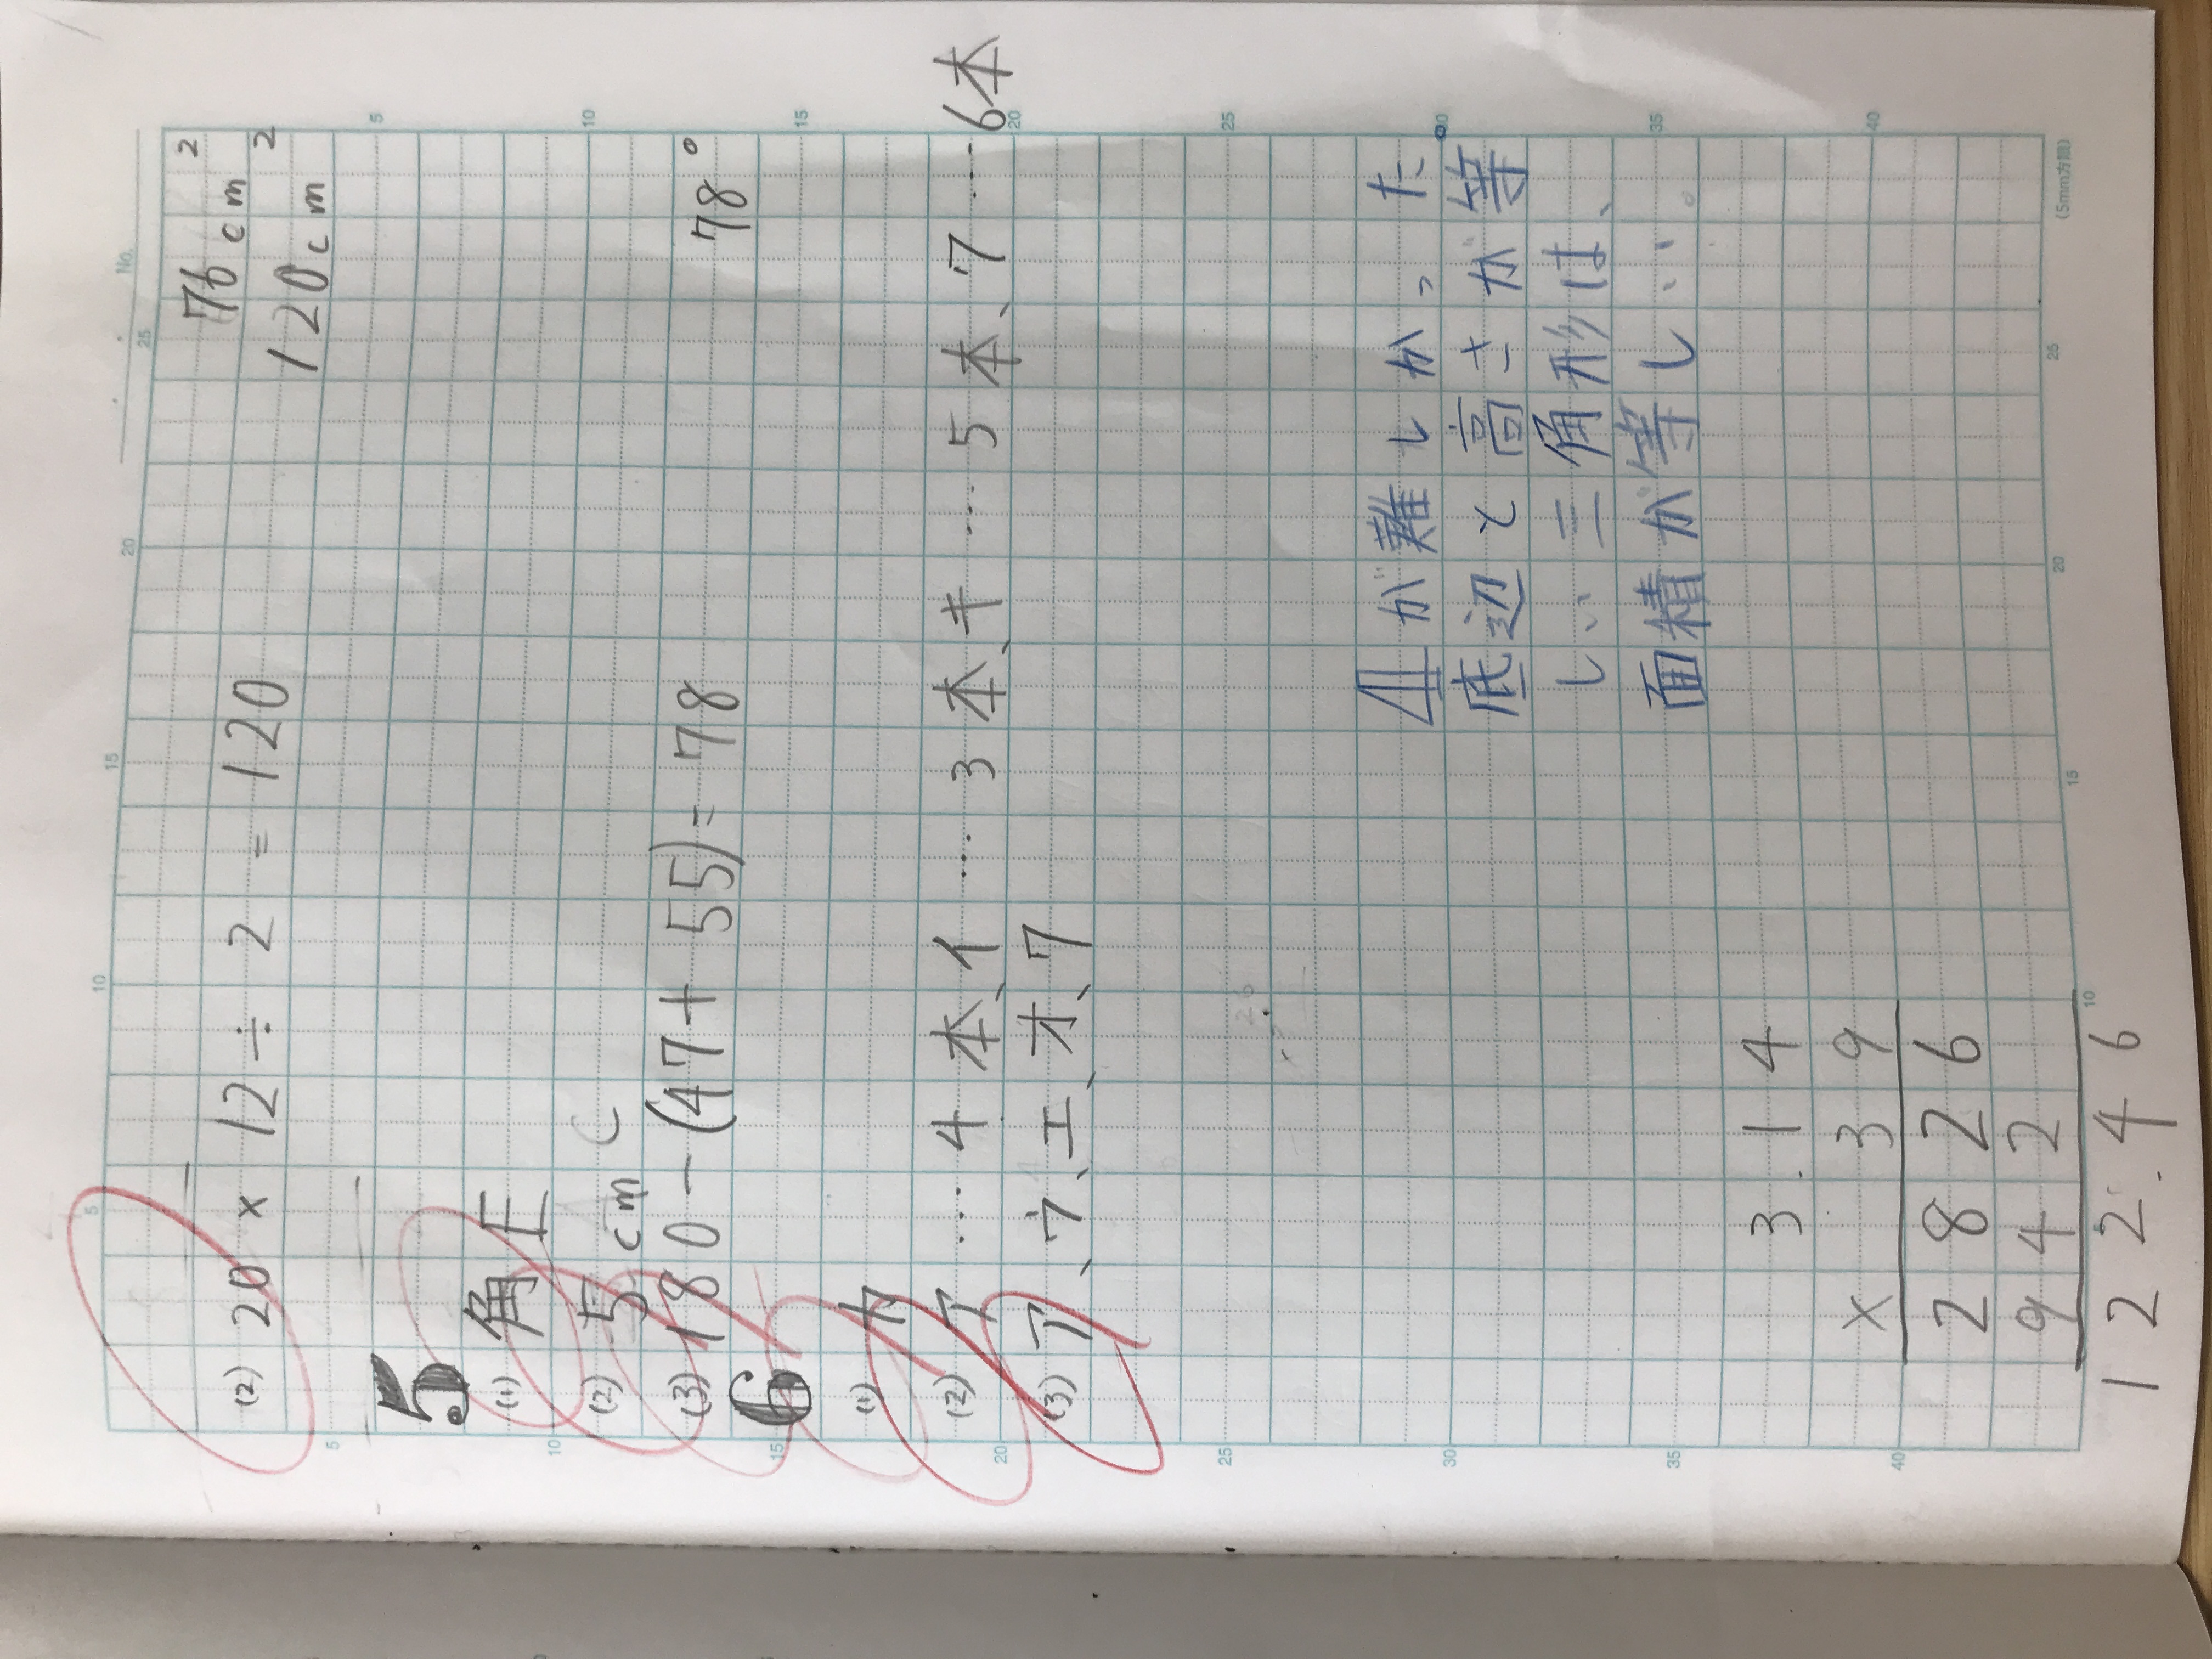 No.
76cm²
(2) 20×12÷2=120 120cm²
5
(1) 角E
(2) 5cm
(3) 180-(47+55)=78 78°
6
(1) カ
(2) ア…4本、イ…3本、キ…5本、ク…6本
(3) ア、ウ、エ、オ、ク
4が難しかった。
底辺と高さが等
しい三角形は、
面積が等しい。
3.14
×39
2826
942
122.46
(5mm方眼)